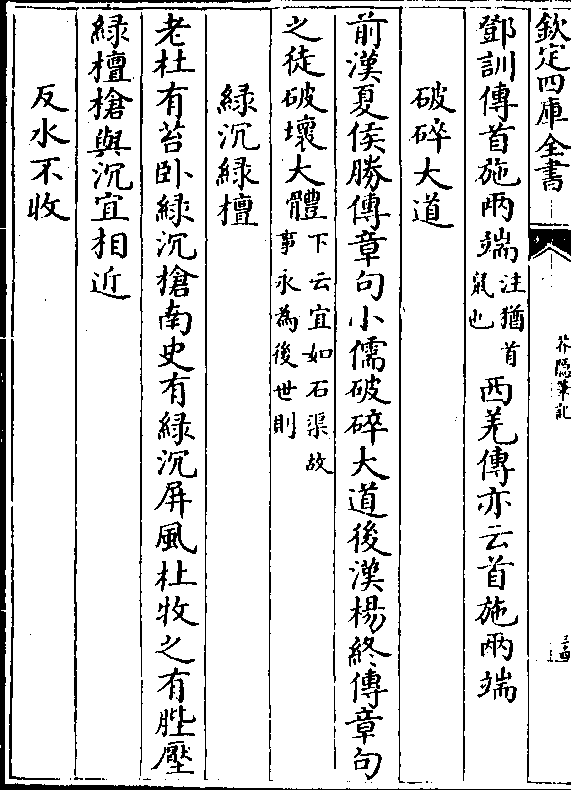 欽定四庫全書
芥隱筆記
鄧訓傳首施兩端注猶首鼠也西羌傳亦云首施兩端
破碎大道
前漢夏侯勝傳章句小儒破碎大道後漢楊終傳章句
之徒破壞大體下云宜如石渠故事永為後世則
綠沉綠檀
老杜有苔卧綠沉槍南史有綠沉屏風杜牧之有陛壓
綠檀槍與沉宜相近
反水不收